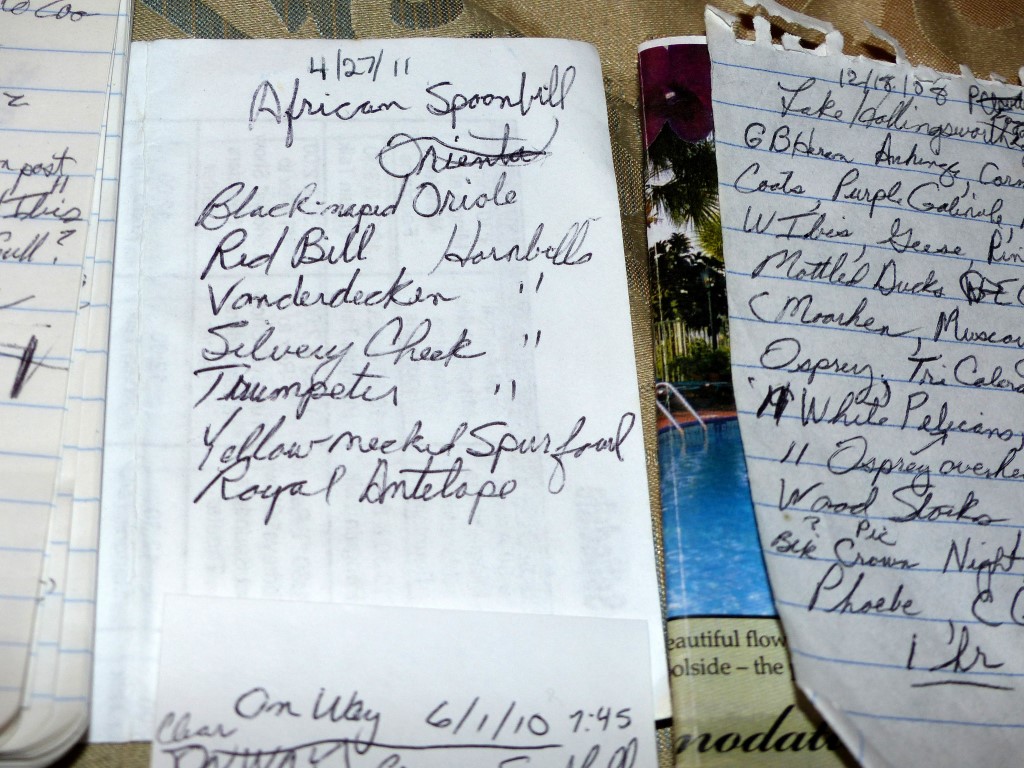 post
"
Ibis
Gull?
4/27/11
African Spoonbill
Orienta
Black-naped Oriole
Red Bill Hornbills
Vanderdecken "
Silvery Cheek "
Trumpeter "
Yellow-necked Spurfowl
Royal Antelope
On Way 6/1/10 7:45
Clear
eautiful flow
olside – the
nodat
12/18/08
Lake Hollingsworth
GBHeron Anhinga, Corm
Coots, Purple Galinule,
W Ibis, Geese, Rin
Mottled Ducks
C Moorhen, Muscov
Osprey, TriColore
White Pelicans,
" Osprey overhe
Wood Storks
? Pic
Blk Crown Night
Phoebe, C
1 hr